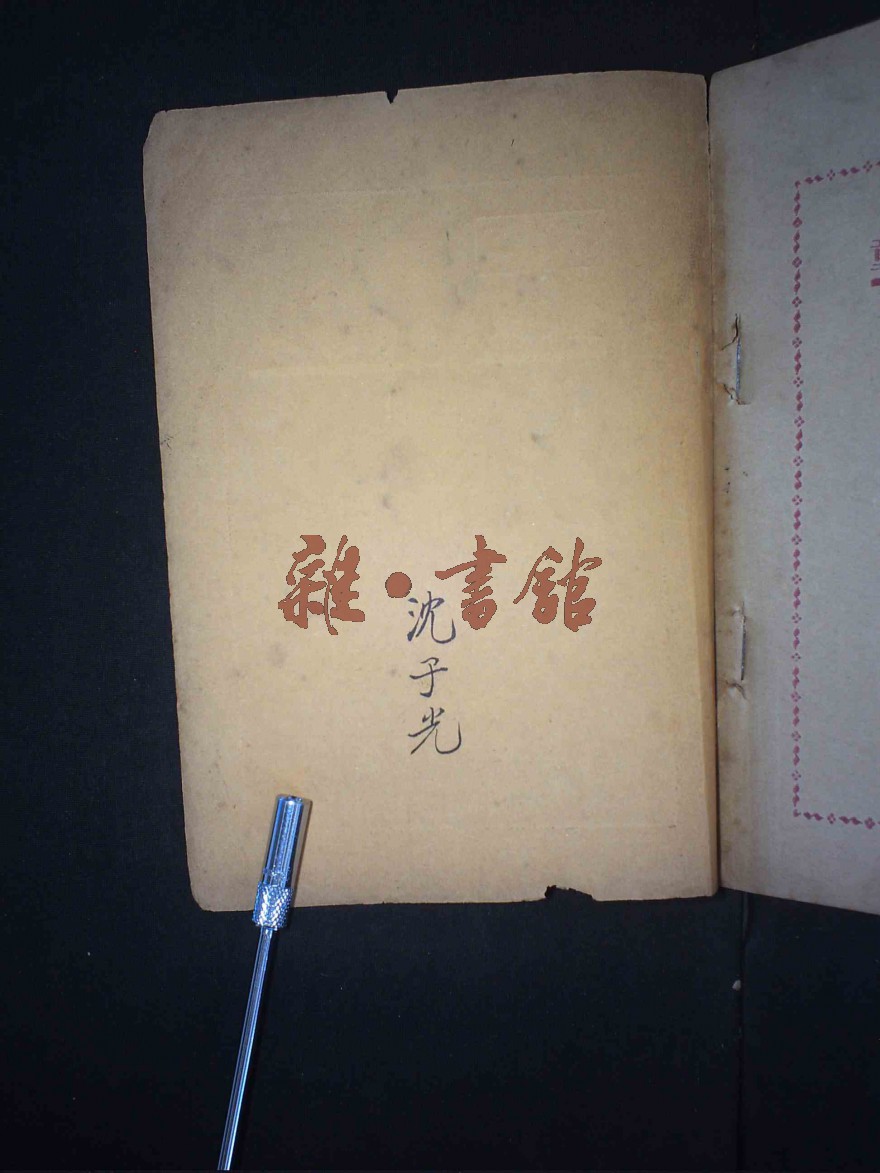 雜·書館
沈子光